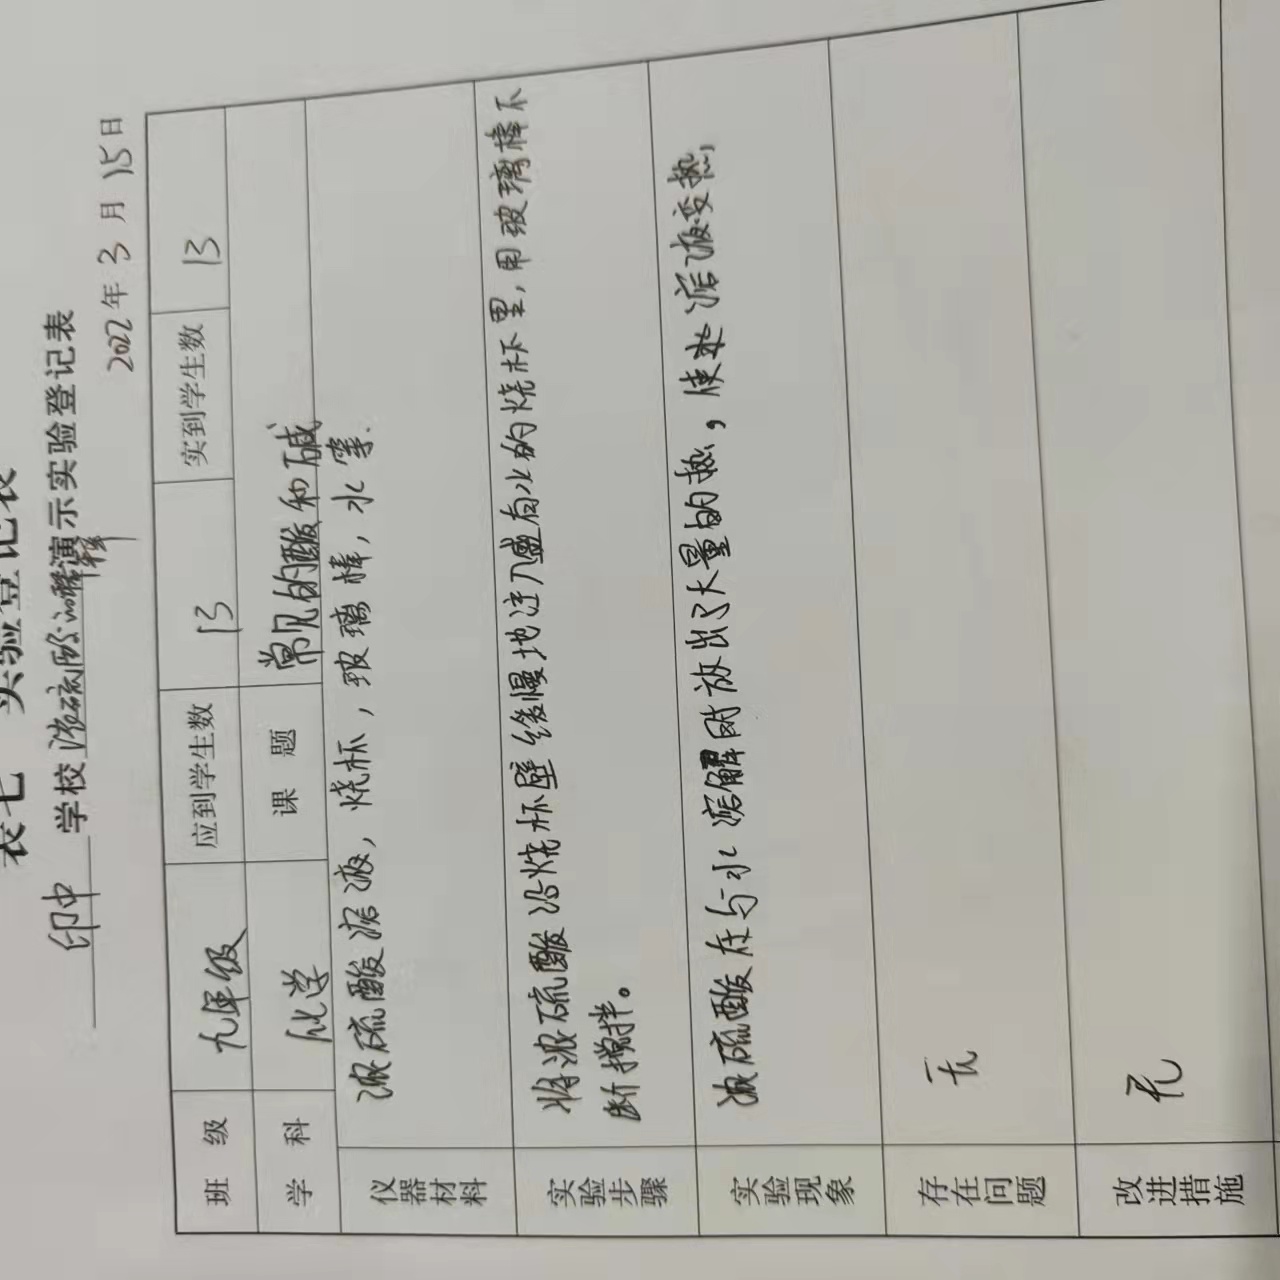 表七 实验登记表
印中 学校 浓硫酸的稀释 演示实验登记表
2022年3月15日
班 级 九年级 应到学生数 13 实到学生数 13
学 科 化学 课 题 常见的酸和碱
仪器材料 浓硫酸溶液，烧杯，玻璃棒，水等.
实验步骤 将浓硫酸沿烧杯壁缓慢地注入盛有水的烧杯里，用玻璃棒不
断搅拌。
实验现象 浓硫酸在与水溶解时放出了大量的热，使 溶液变热，
存在问题 无
改进措施 无